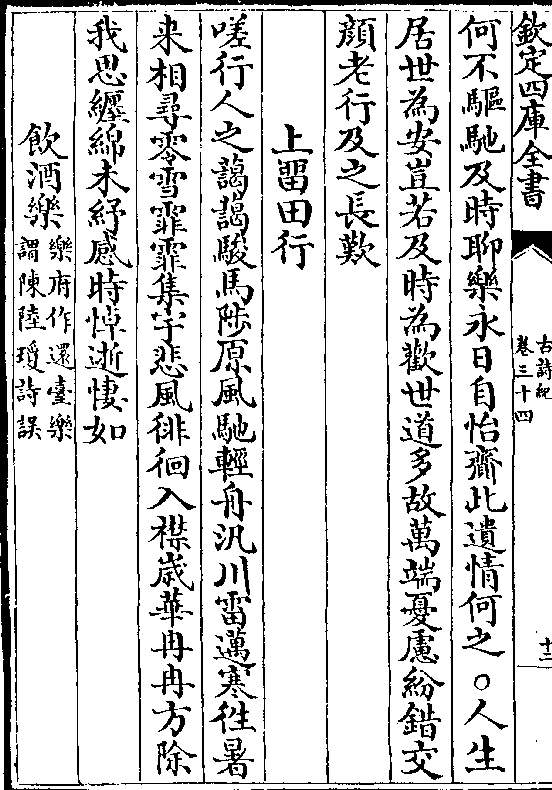 欽定四庫全書
古詩紀
卷三十四
十二
何不驅馳及時聊樂永日自怡齊此遺情何之○人生
居世為安豈若及時為歡世道多故萬端憂慮紛錯交
顔老行及之長歎
上畱田行
嗟行人之藹藹駿馬陟原風馳輕舟汎川雷邁寒徃暑
来相尋零雪霏霏集宇悲風徘徊入襟歲華冉冉方除
我思纏綿未紓感時悼逝悽如
飲酒樂
樂府作還臺樂
謂陳陸瓊詩誤